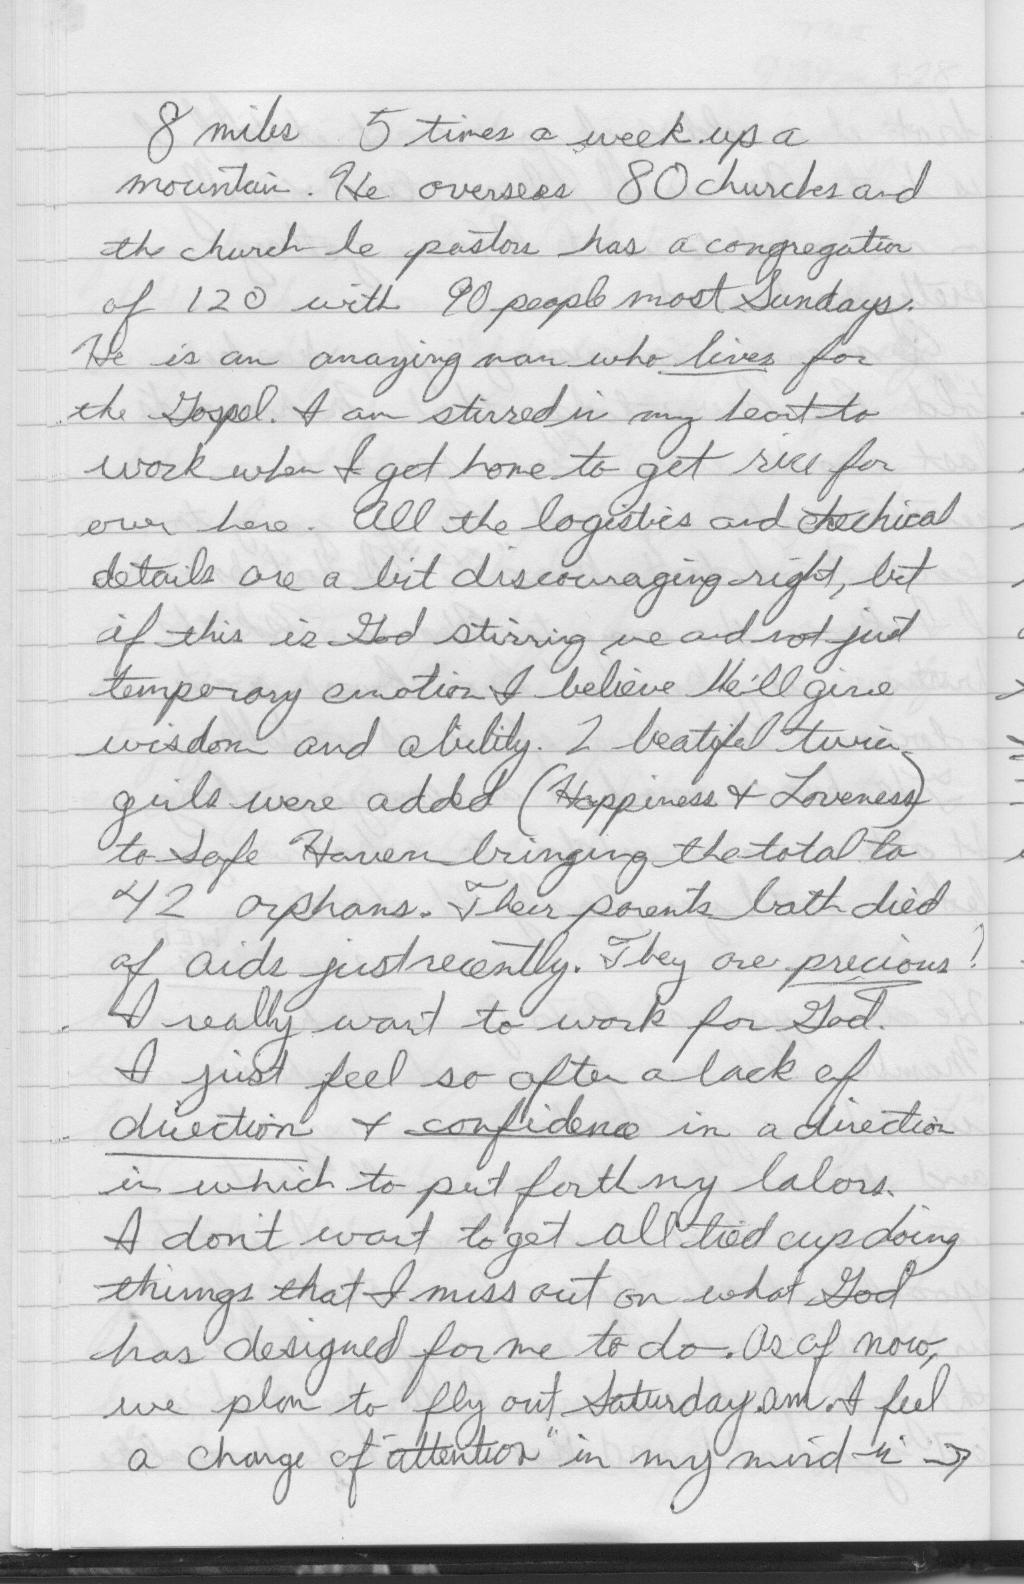 8 miles 5 times a week up a
mountain. He oversees 80 churches and
the church he pastors has a congregation
of 120 with 90 people most Sundays.
He is an amazing man who lives for
the Gospel. I am stirred in my heart to
work when I get home to get rice for
over here. All the logistics and techical
details are a bit discouraging right, but
if this is God stirring me and not just
temporary emotion I believe He'll give
wisdom and ability. 2 beatiful twin
girls were added (Happiness & Loveness)
to Safe Haven bringing the total to
42 orphans. Their parents both died
of aids just recently. They are precious!
I really want to work for God.
I just feel so often a lack of
direction & confidence in a direction
in which to put forth my labors.
I don't want to get all tied up doing
things that I miss out on what God
has designed for me to do. As of now,
we plan to fly out Saturday am. I feel
a change of "attention" in my mind in →